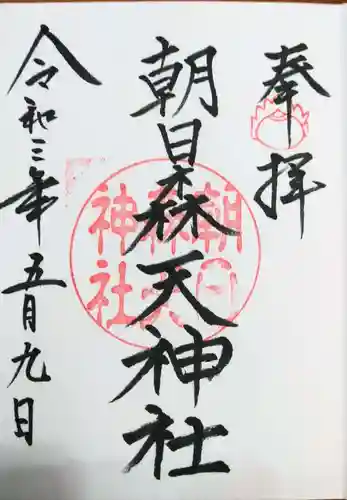 奉拝
朝日森天神社
令和三年五月九日
朝日森天神社